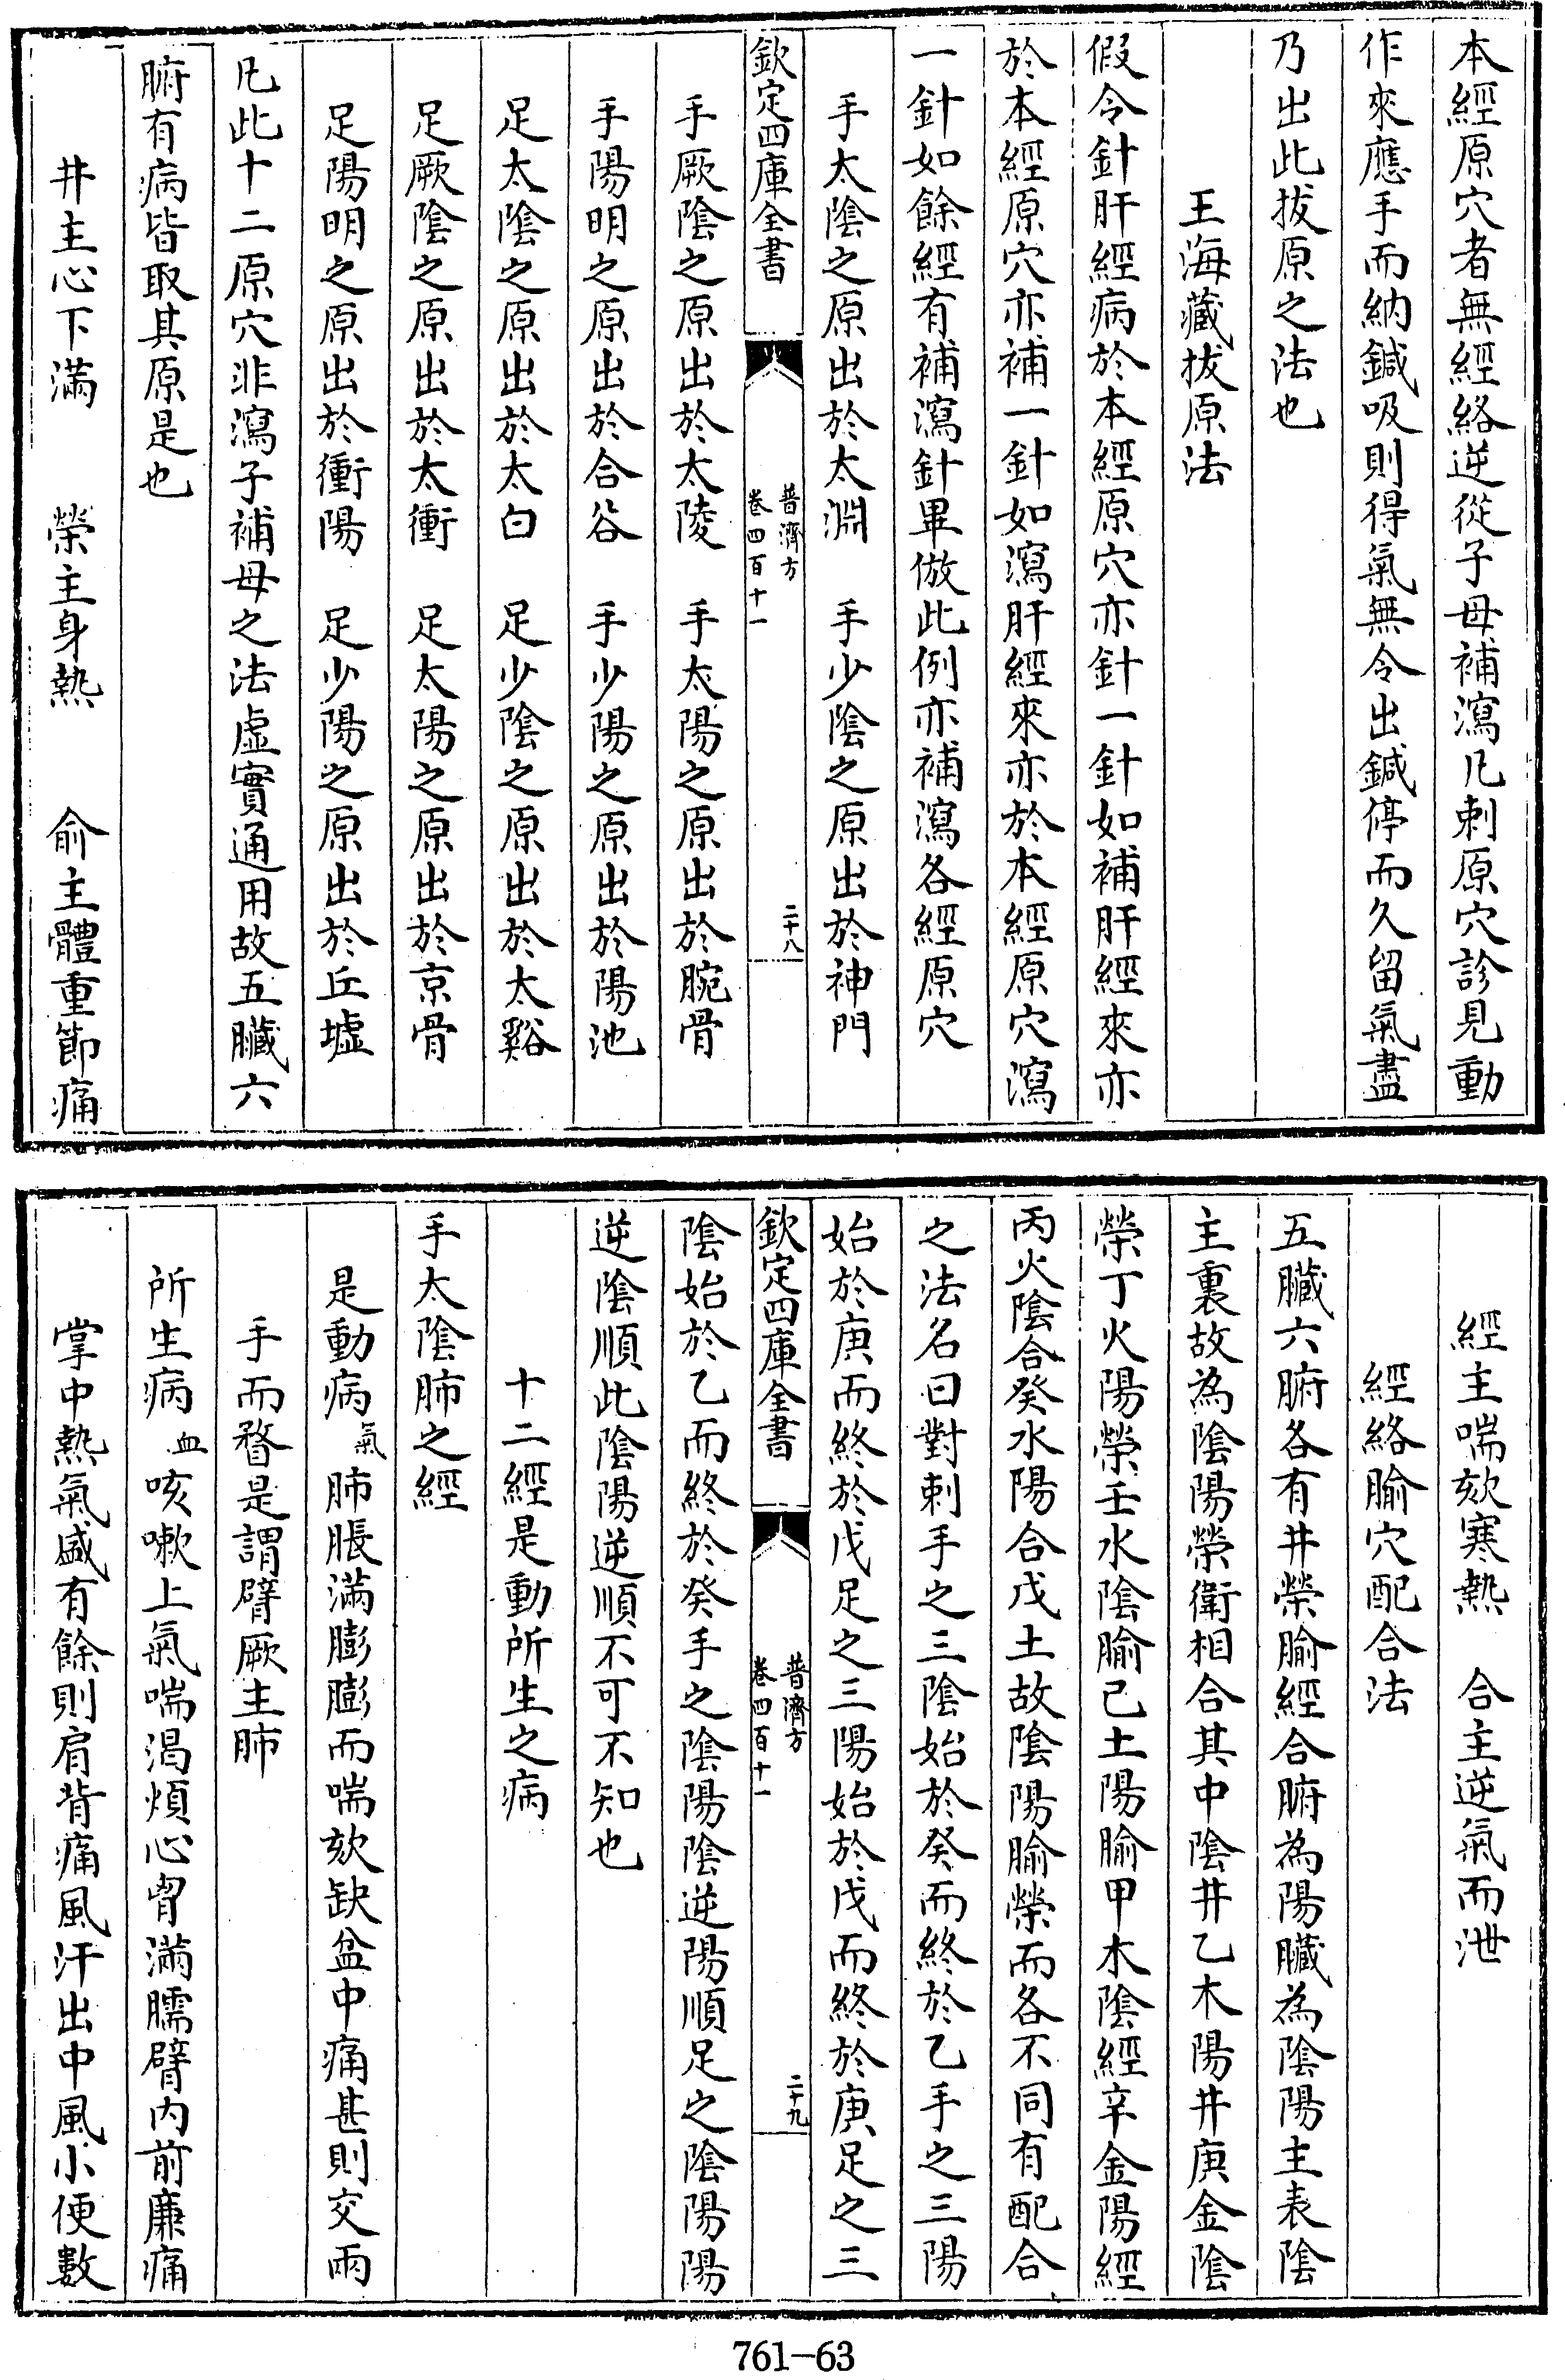 本經原穴者無經絡逆從子母補瀉凡刺原穴診見動
作來應手而納鍼吸則得氣無令出鍼停而久留氣盡
乃出此拔原之法也
王海藏拔原法
假令針肝經病於本經原穴亦針一針如補肝經來亦
於本經原穴亦補一針如瀉肝經來亦於本經原穴瀉
一針如餘經有補瀉針畢倣此例亦補瀉各經原穴
手太陰之原出於太淵　手少陰之原出於神門
欽定四庫全書
普濟方
卷四百十一
二十八
手厥陰之原出於太陵　手太陽之原出於腕骨
手陽明之原出於合谷　手少陽之原出於陽池
足太陰之原出於太白　足少陰之原出於太谿
足厥陰之原出於太衝　足太陽之原出於京骨
足陽明之原出於衝陽　足少陽之原出於丘墟
凡此十二原穴非瀉子補母之法虛實通用故五臟六
腑有病皆取其原是也
井主心下滿　滎主身熱　俞主體重節痛
經主喘欬寒熱　合主逆氣而泄
經絡腧穴配合法
五臟六腑各有井滎腧經合腑為陽臟為陰陽主表陰
主裏故為陰陽榮衛相合其中陰井乙木陽井庚金陰
滎丁火陽滎壬水陰腧己土陽腧甲木陰經辛金陽經
丙火陰合癸水陽合戊土故陰陽腧滎而各不同有配合
之法名曰對刺手之三陰始於癸而終於乙手之三陽
始於庚而終於戊足之三陽始於戊而終於庚足之三
欽定四庫全書
普濟方
卷四百十一
二十九
陰始於乙而終於癸手之陰陽陰逆陽順足之陰陽陽
逆陰順此陰陽逆順不可不知也
十二經是動所生之病
手太陰肺之經
是動病氣肺脹滿膨膨而喘欬缺盆中痛甚則交兩
手而瞀是謂臂厥主肺
所生病血咳嗽上氣喘渴煩心胷滿臑臂內前廉痛
掌中熱氣盛有餘則肩背痛風汗出中風小便數
761—63